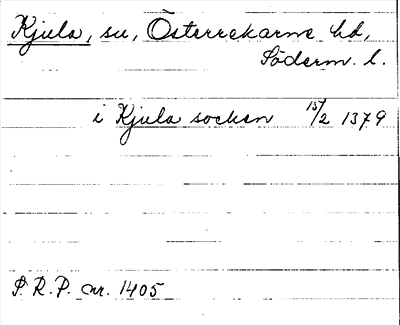 Kjula, sn, Österrekarne hd,
Söderm. l.
i Kjula socken 15/2 1379
S. R. P. nr. 1405